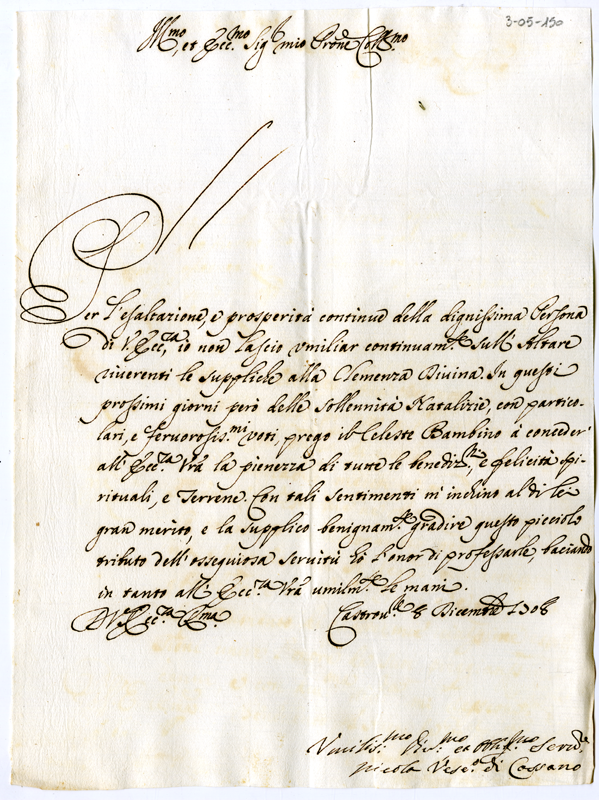 3-05-150
Ill.mo, et Ecc.mo Sig.r mio Prone Coll.mo
Per l'esaltazione, e prosperità continue della dignissima Persona
di V. Ecc.za, io non lascio umiliar continuam.te sull'Altare
riverenti le suppliche alla Clemenza Divina. In questi
prossimi giorni però delle sollennità Natalizie, con partico-
lari, e fervorosis.mi voti, prego il Celeste Bambino à conceder'
all'Ecc.za Vra la pienezza di tutte le benediz.ni, e felicità spi-
rituali, e Terrene. Con tali sentimenti m'inchino al di lei
gran merito, e la supplico benignam.te gradire questo picciolo
tributo dell'ossequiosa servitù hò l'onor di professarle, baciando
in tanto all'Ecc.za Vra umilm.te le mani.
D V. Ecc.za Ill.ma Castrov.ri 8 Dicembre 1708
Umilis.mo Div.mo et Obblig.mo Serv.re
Nicola Vesc.o di Cassano